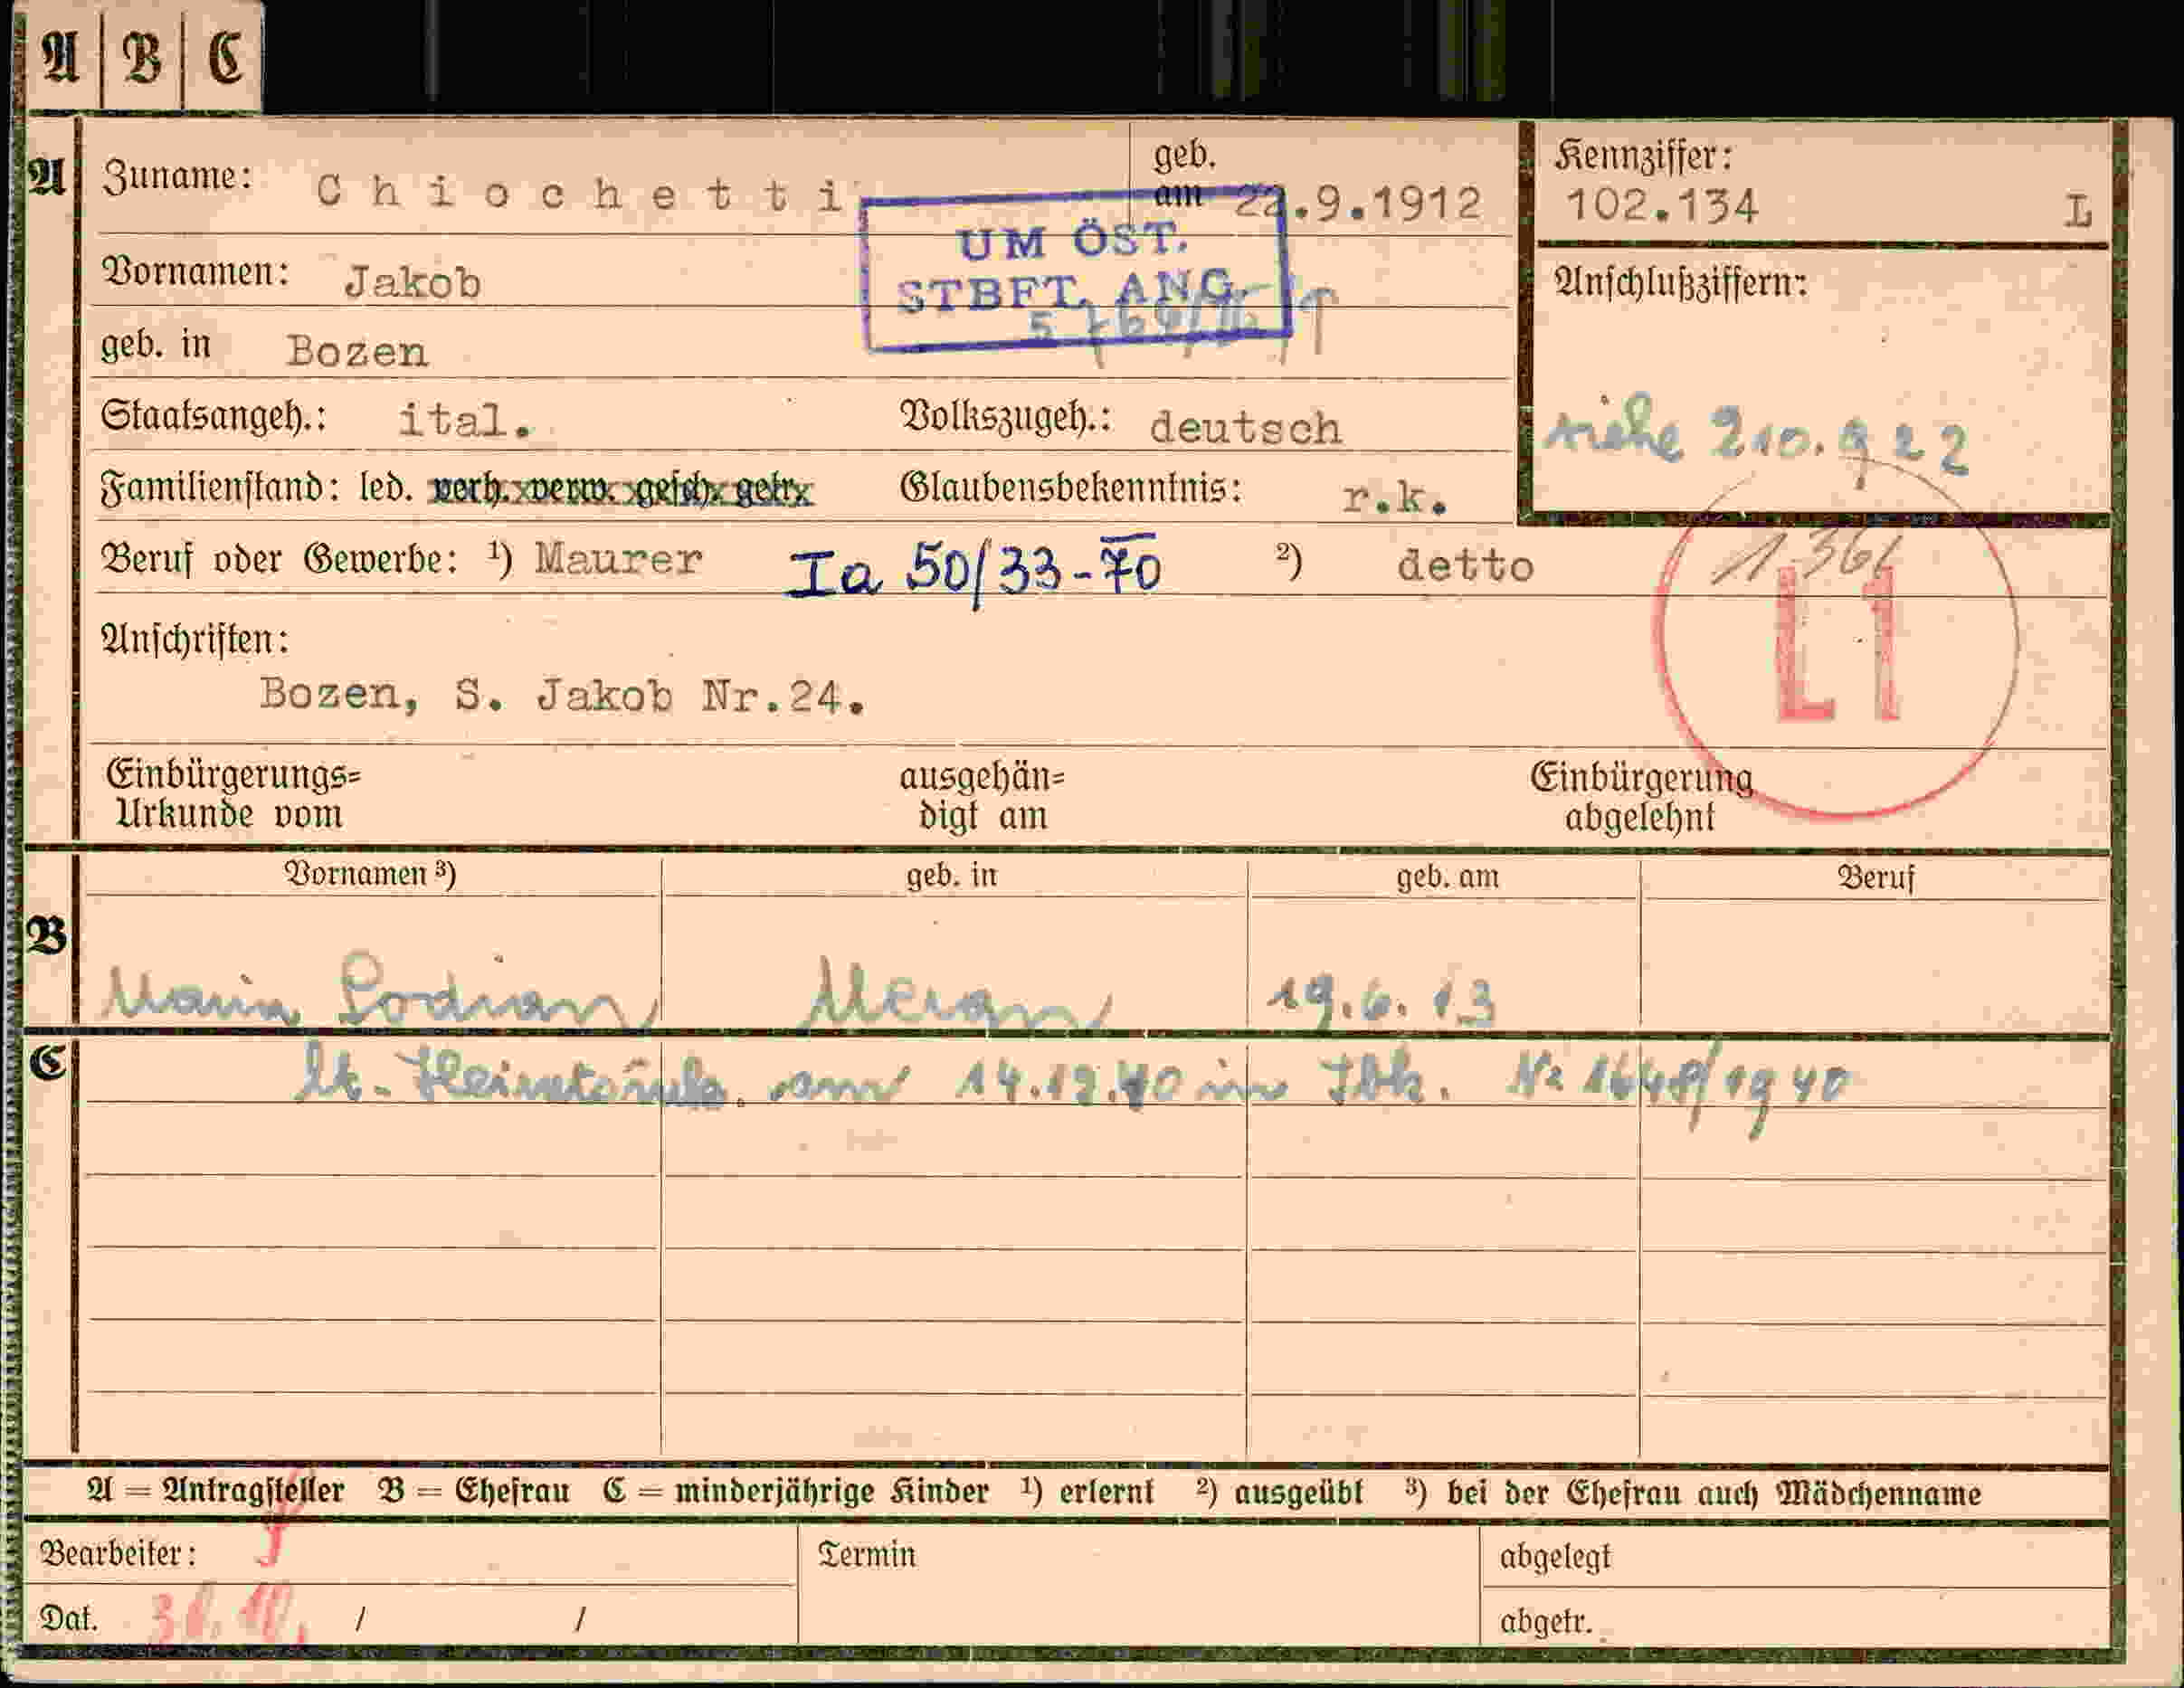 A B C
A
Zuname: Chiochetti
geb. am 22.9.1912
Kennziffer:
102.134 L
UM ÖST.
STBFT. ANG.
Vornamen: Jakob
Anschlußziffern:
siehe 210.922
geb. in Bozen
Staatsangeh.: ital. Volkszugeh.: deutsch
Familienstand: led. verh. verw. gesch. getr. Glaubensbekenntnis: r.k.
Beruf oder Gewerbe: ¹) Maurer Ia 50/33-70 ²) detto
L1
Anschriften:
Bozen, S. Jakob Nr.24.
Einbürgerungs=
Urkunde vom
ausgehän=
digt am
Einbürgerung
abgelehnt
Vornamen ³) geb. in geb. am Beruf
B
Maria Meran 19.6.13
C
lt. am 14.12.40 in Ibk. Nr 1648/1940
A = Antragsteller B = Ehefrau C = minderjährige Kinder ¹) erlernt ²) ausgeübt ³) bei der Ehefrau auch Mädchenname
Bearbeiter: Termin abgelegt
Dat. / / abgetr.